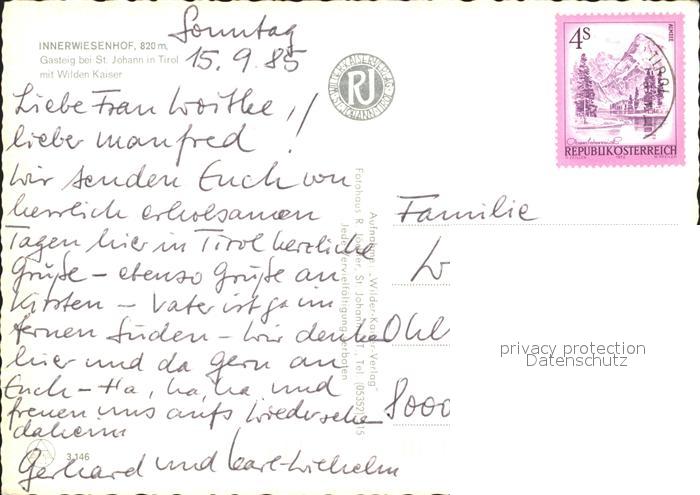 Sonntag
15.9.85
INNERWIESENHOF, 820 m,
Gasteig bei St. Johann in Tirol
mit Wilden Kaiser
Liebe Frau Woithe,!
lieber Manfred!
Wir senden Euch von
herrlich erholsamen
Tagen hier in Tirol herzliche
Grüße - ebenso Grüße an
Kirsten - Vater ist ja im
fernen Süden - Wir denken
hier und da gern an
Euch - Ha, ha, ha und
freuen uns aufs Wiedersehen
daheim
Gerhard und Karl-Wilhelm
3.146
RJ
Aufnahme: "Wilder-Kaiser-Verlag"
Fotohaus R. Jöchler, St. Johann i. T., Tel. (05352)
Jede Vervielfältigung verboten
4 S
ALMSEE
REPUBLIK ÖSTERREICH
TIROL
Familie
W
Ohl
8000
privacy protection
Datenschutz